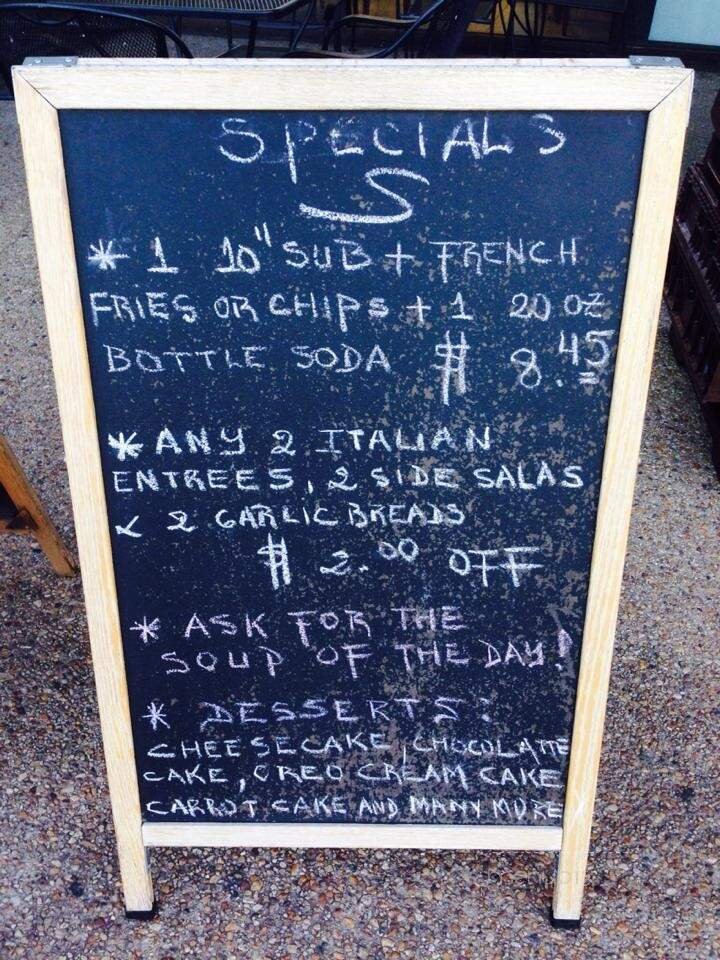 SPECIALS
* 1 10" SUB + FRENCH
FRIES OR CHIPS + 1 20 OZ
BOTTLE SODA $ 8.45
* ANY 2 ITALIAN
ENTREES, 2 SIDE SALAS
& 2 GARLIC BREADS
$ 2.00 OFF
* ASK FOR THE
SOUP OF THE DAY!
* DESSERTS:
CHEESECAKE, CHOCOLATTE
CAKE, OREO CREAM CAKE
CARROT CAKE AND MANY MORE